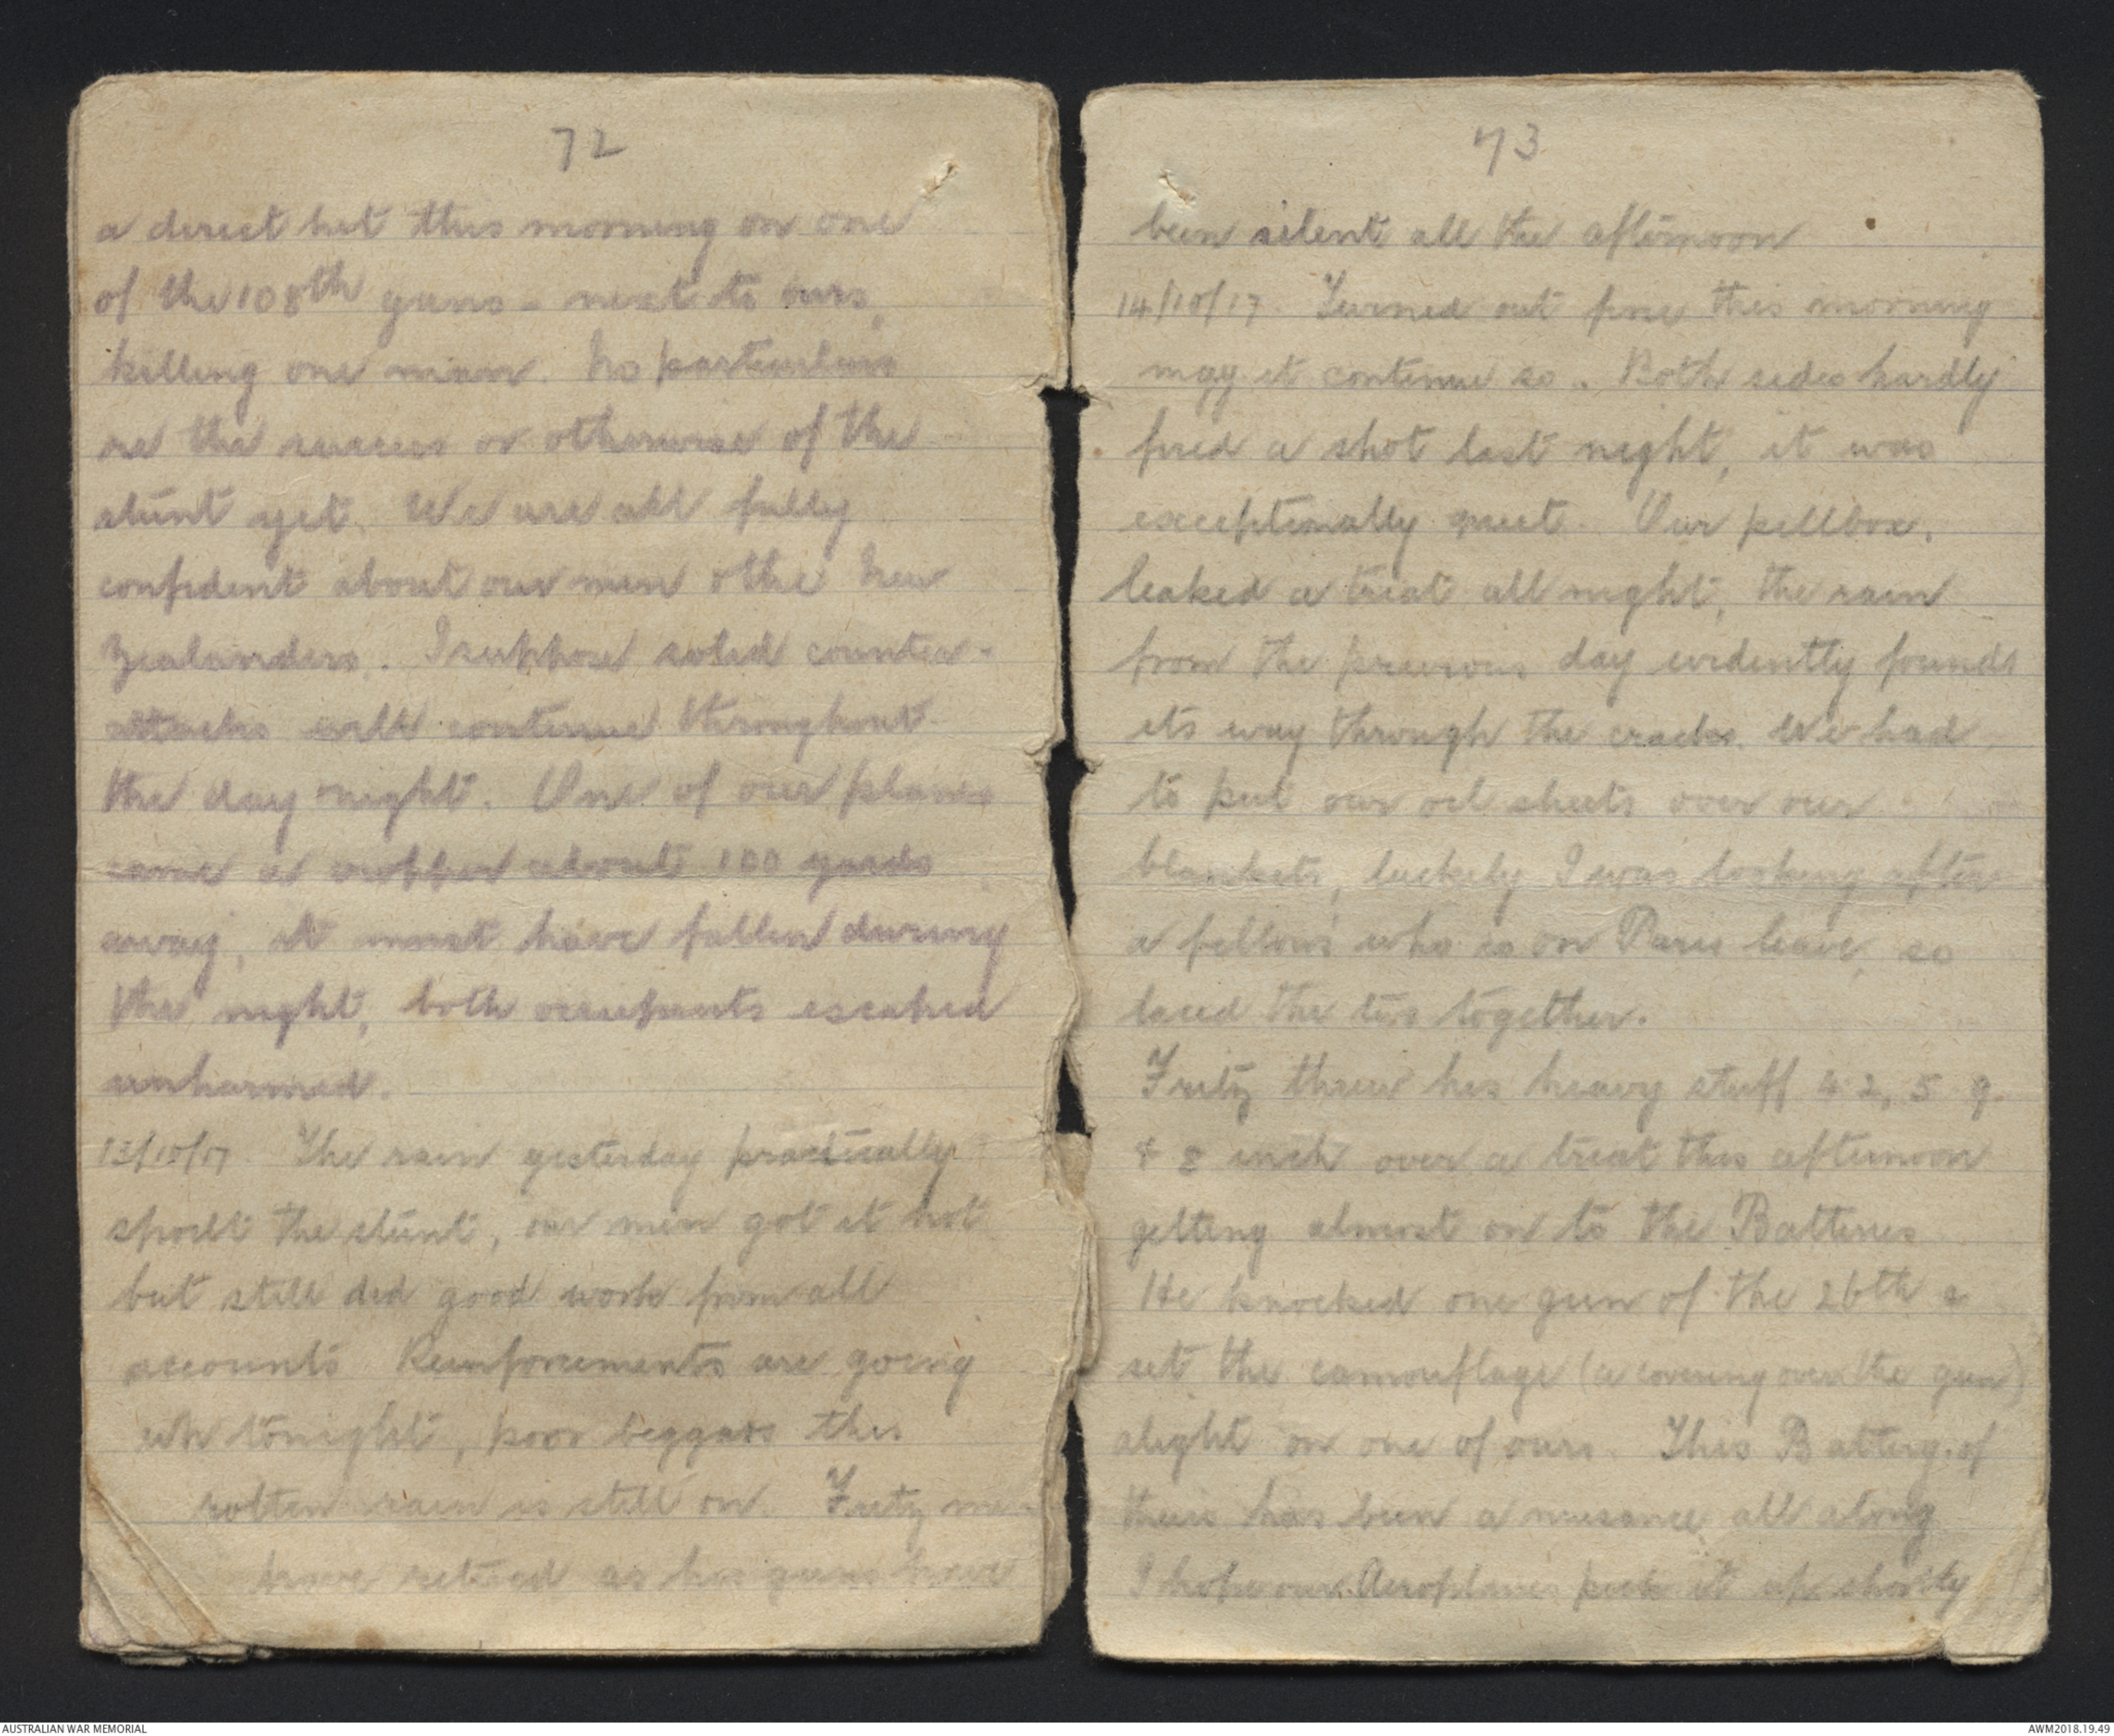 72
a direct hit this morning on one
of the 108th guns - next to ours,
killing one man. No particulars
re the success or otherwise of the
stunt yet. We are all fully
confident about our men & the New
Zealanders. I suppose solid counter-
attacks will continue throughout
the day & night. One of our planes
came a cropper about 100 yards
away, it must have fallen during
the night, both occupants escaped
unharmed.
13/10/17 The rain yesterday practically
spoilt the stunt, our men got it hot
but still did good work from all
accounts Reinforcements are going
up tonight, poor beggars this
rotten rain is still on. Fritz
have retired as his guns have
73
been silent all the afternoon
14/10/17. Turned out fine this morning
may it continue so. Both sides hardly
fired a shot last night, it was
exceptionally quiet. Our pillbox,
leaked a treat all night, the rain
from the previous day evidently found
its way through the cracks. We had
to put our oil sheets over our
blankets, luckily I was looking after
a fellows who is on Paris leave, so
laced the two together.
Fritz threw his heavy stuff 4.2, 5.9
& 8 inch over a treat this afternoon
getting almost on to the Batteries
He knocked one gun of the 26th &
set the camouflage (a covering over the gun)
alight on one of ours. This Battery of
theirs has been a nuisance all along
I hope our Aeroplanes pick it up shortly
AUSTRALIAN WAR MEMORIAL
AWM2018.19.49